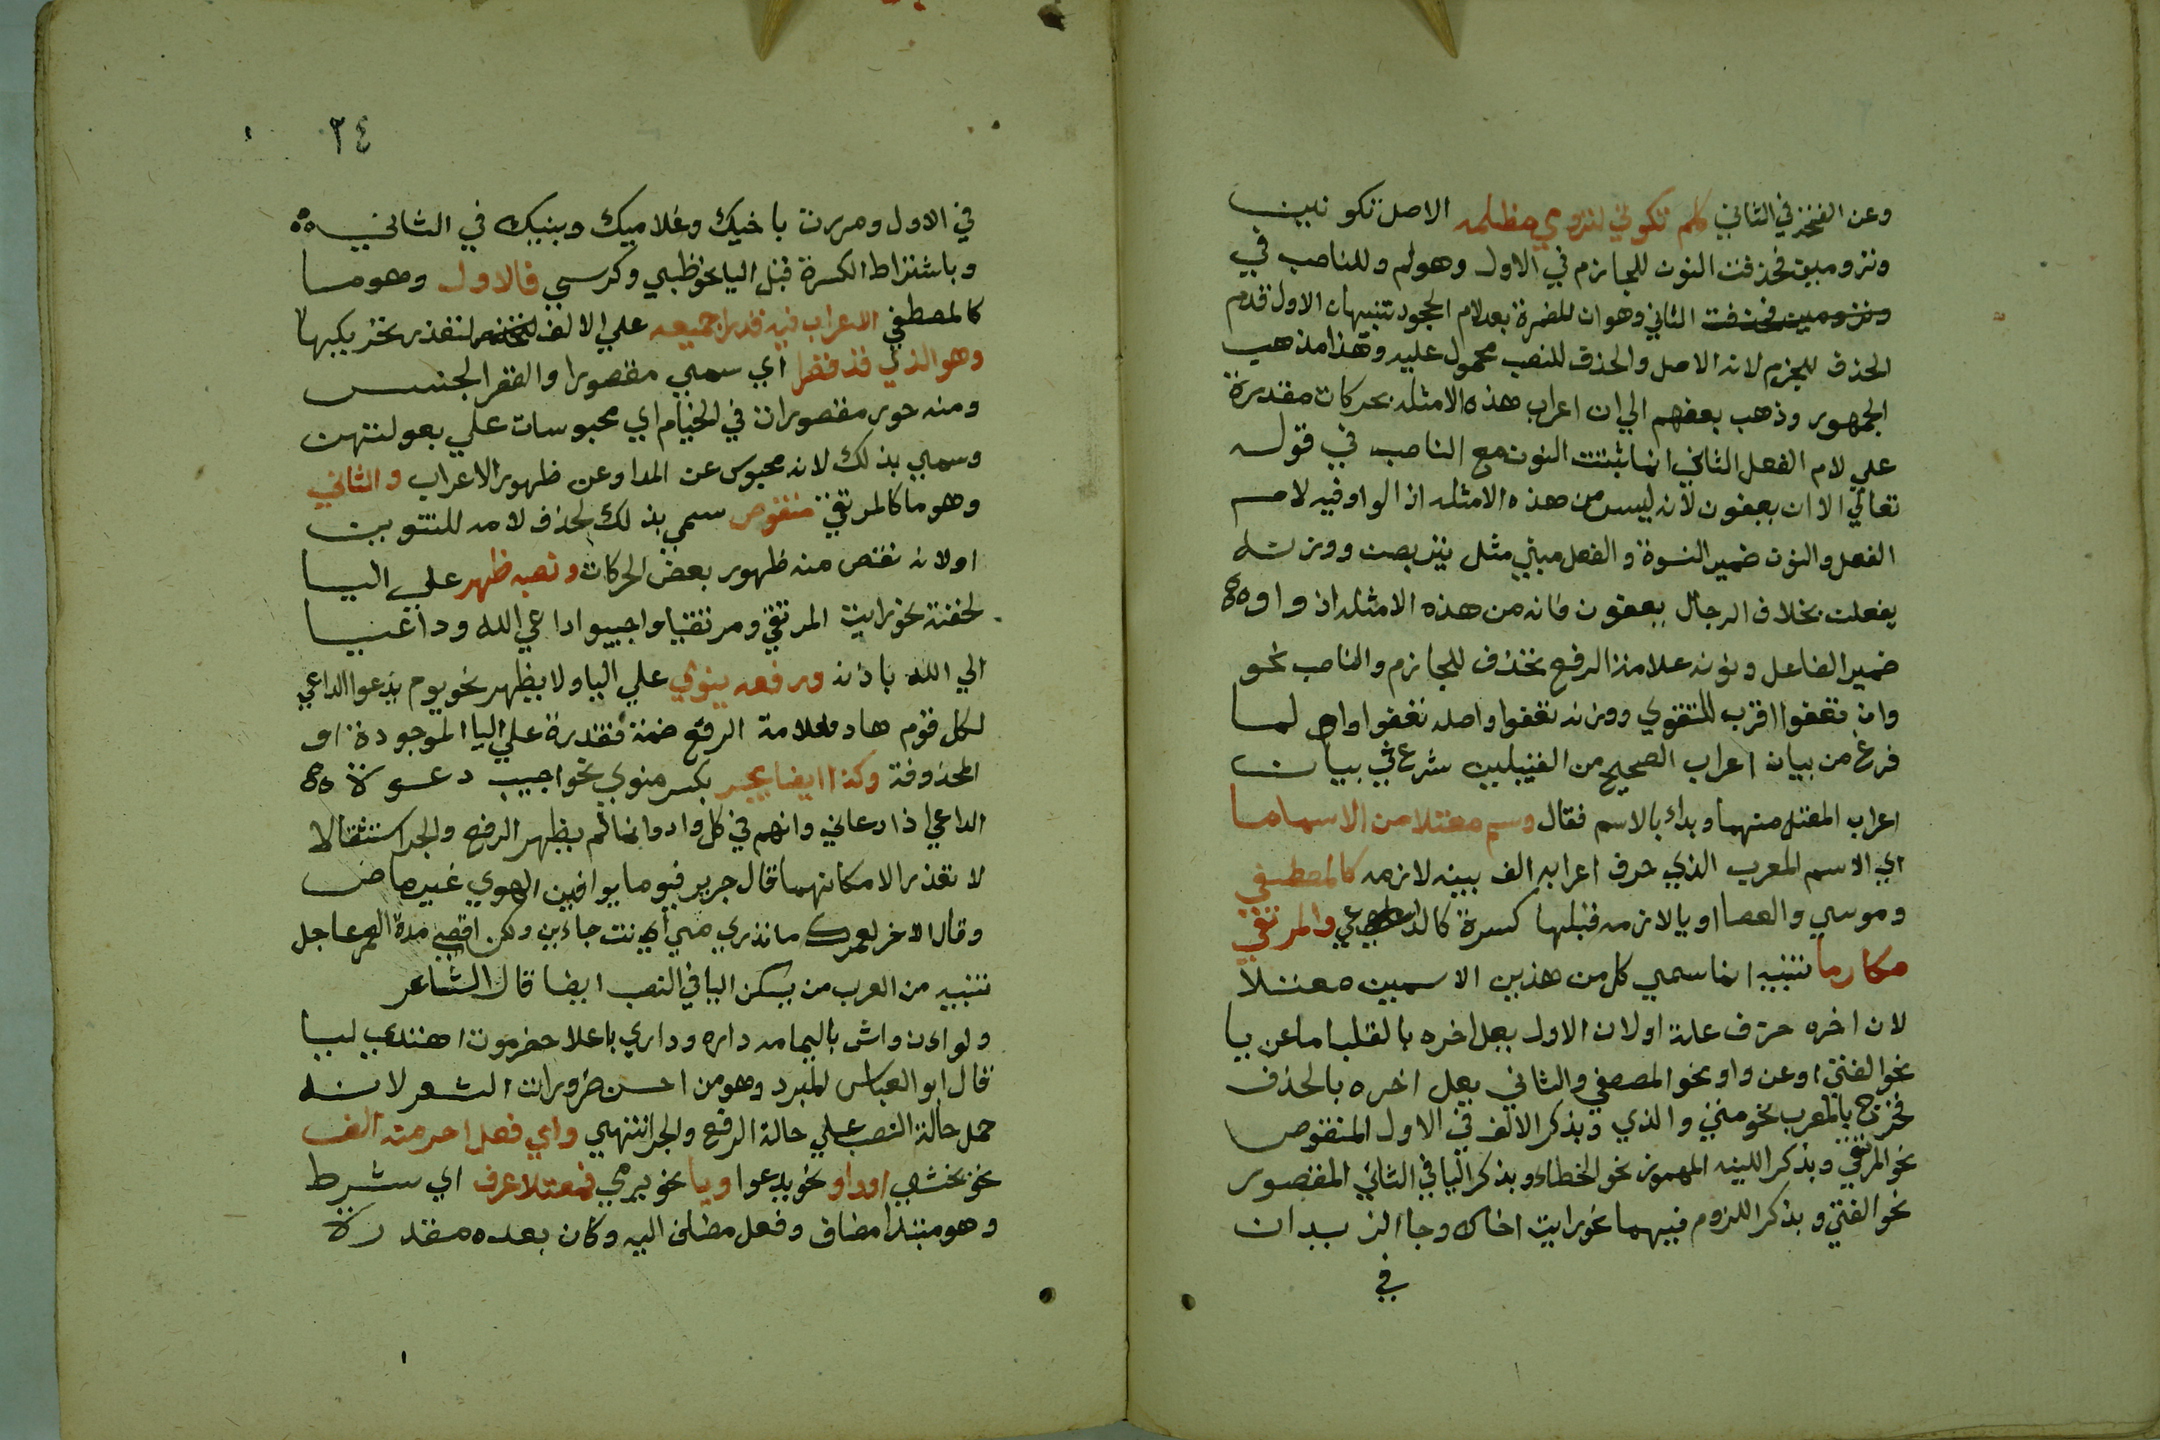 وعن الفتحة في الثاني كلم تكوني لترومي مظلمه الاصل تكونين
وترومين فحذفت النون للجازم في الاول وهو لم وللناصب في
الثاني وهو ان المضمرة بعد لام الجحود تنبيهان الاول قدم
الحذف للجزم لانه الاصل والحذف للنصب محمول عليه وهذا مذهب
الجمهور وذهب بعضهم الي ان اعراب هذه الامثله بحركات مقدرة
علي لام الفعل الثاني انما ثبتت النون مع الناصب في قوله
تعالي الا ان يعفون لانه ليس من هذه الامثله اذ الواو فيه لام
الفعل والنون ضمير النسوة والفعل مبني مثل يتربصن ووزنه
يفعلن بخلاف الرجال يعفون فانه من هذه الامثله اذ واوه
ضمير الفاعل ونونه علامة الرفع تحذف للجازم والناصب نحو
وان تعفوا اقرب للتقوي ووزنه تعفوا واصله تعفوا ولما
فرغ من بيان اعراب الصحيح من القبيلين شرع في بيان
اعراب المعتل منهما وبداء بالاسم فقال وسم معتلا من الاسما ما
اي الاسم المعرب الذي حرف اعرابه الف لينه لازمه كالمصطفي
وموسي والعصا او يا لازمه قبلها كسرة كالداعي والمرتقي
مكارما تنبيه انما سمي كل من هذين الاسمين معتلا
لان اخره حرف علة او لان الاول يعل اخره بالقلب اما عن يا
نحو الفتي او عن واو نحو المصطفي والثاني يعل اخره بالحذف
فخرج بالمعرب نحو متي والذي وبذكر الالف في الاول المنقوص
نحو المرتقي وبذكر اللينه المهموز نحو الخطاء وبذكر اليا في الثاني المقصور
نحو الفتي وبذكر اللزوم فيهما نحو رايت اخاك وجا الزيدان
في
٢٤
في الاول ومررت باخيك وغلاميك وبنيك في الثاني
وباشتراط الكسرة قبل اليا نحو ظبي وكرسي فالاول وهو ما
كالمصطفي الاعراب فيه قدرا جميعه علي الالف لتعذر تحريكها
وهو الذي قد قصرا اي سمي مقصورا والقصر الحبس
ومنه حور مقصورات في الخيام اي محبوسات علي بعولتهن
وسمي بذلك لانه محبوس عن المد او عن ظهور الاعراب والثاني
وهو ما كالمرتقي منقوص سمي بذلك لحذف لامه للتنوين
او لانه نقص منه ظهور بعض الحركات ونصبه ظهر علي اليا
لخفته نحو رايت المرتقي ومرتقيا واجيبوا داعي الله وداعيا
الي الله باذنه ورفعه ينوي علي اليا ولا يظهر نحو يوم يدعوا الداعي
لكل قوم هاد فعلامة الرفع ضمة مقدرة علي اليا الموجودة او
المحذوفة وكذا ايضا يجر بكسر منوي نحو اجيب دعوة
الداعي اذا دعاني وانهم في كل واد وانما لم يظهر الرفع والجر استثقالا
لا تعذرا لامكانهما قال جرير فيوما يوافين الهوي غير ماضي
وقال الاخر لعمرك ما تدري متي انت جاءي ولكن اقصي مدة العمر عاجل
تنبيه من العرب من يسكن اليا في النصب ايضا قال الشاعر
ولو ان واش باليمامه داره وداري باعلا حضرموت اهتدي ليا
قال ابو العباس المبرد وهو من احسن ضرورات الشعر لانه
حمل حالة النصب علي حالة الرفع والجر انتهي واي فعل اخر منه الف
نحو يخشي او واو نحو يدعوا ويا نحو يرمي فمعتلا عرف اي شرط
وهو مبتدا مضاف وفعل مضاف اليه وكان بعده مقدرة